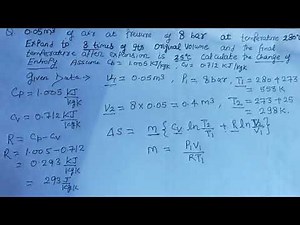 Q 0.05m³ of air at pressure of 8 bar at temperature 280°
Expand to 8 times of its original volume and the final
temperature after expansion is 25°C Calculate the change of
Entropy Assume Cp = 1.005 KJ/kgk Cv = 0.712 KJ/kgk
Given Data :-
V₁ = 0.05m³, P₁ = 8bar, T₁ = 280+273
= 553k
Cp = 1.005 KJ/kgk
V₂ = 8 × 0.05 = 0.4m³, T₂ = 273+25
= 298k.
Cv = 0.712 KJ/kgk
ΔS = m { Cv ln T₂/T₁ + R ln V₂/V₁ }
R = Cp - Cv
R = 1.005 - 0.712
m = P₁V₁/RT₁
= 0.293 KJ/kgk
= 293 J/kgk